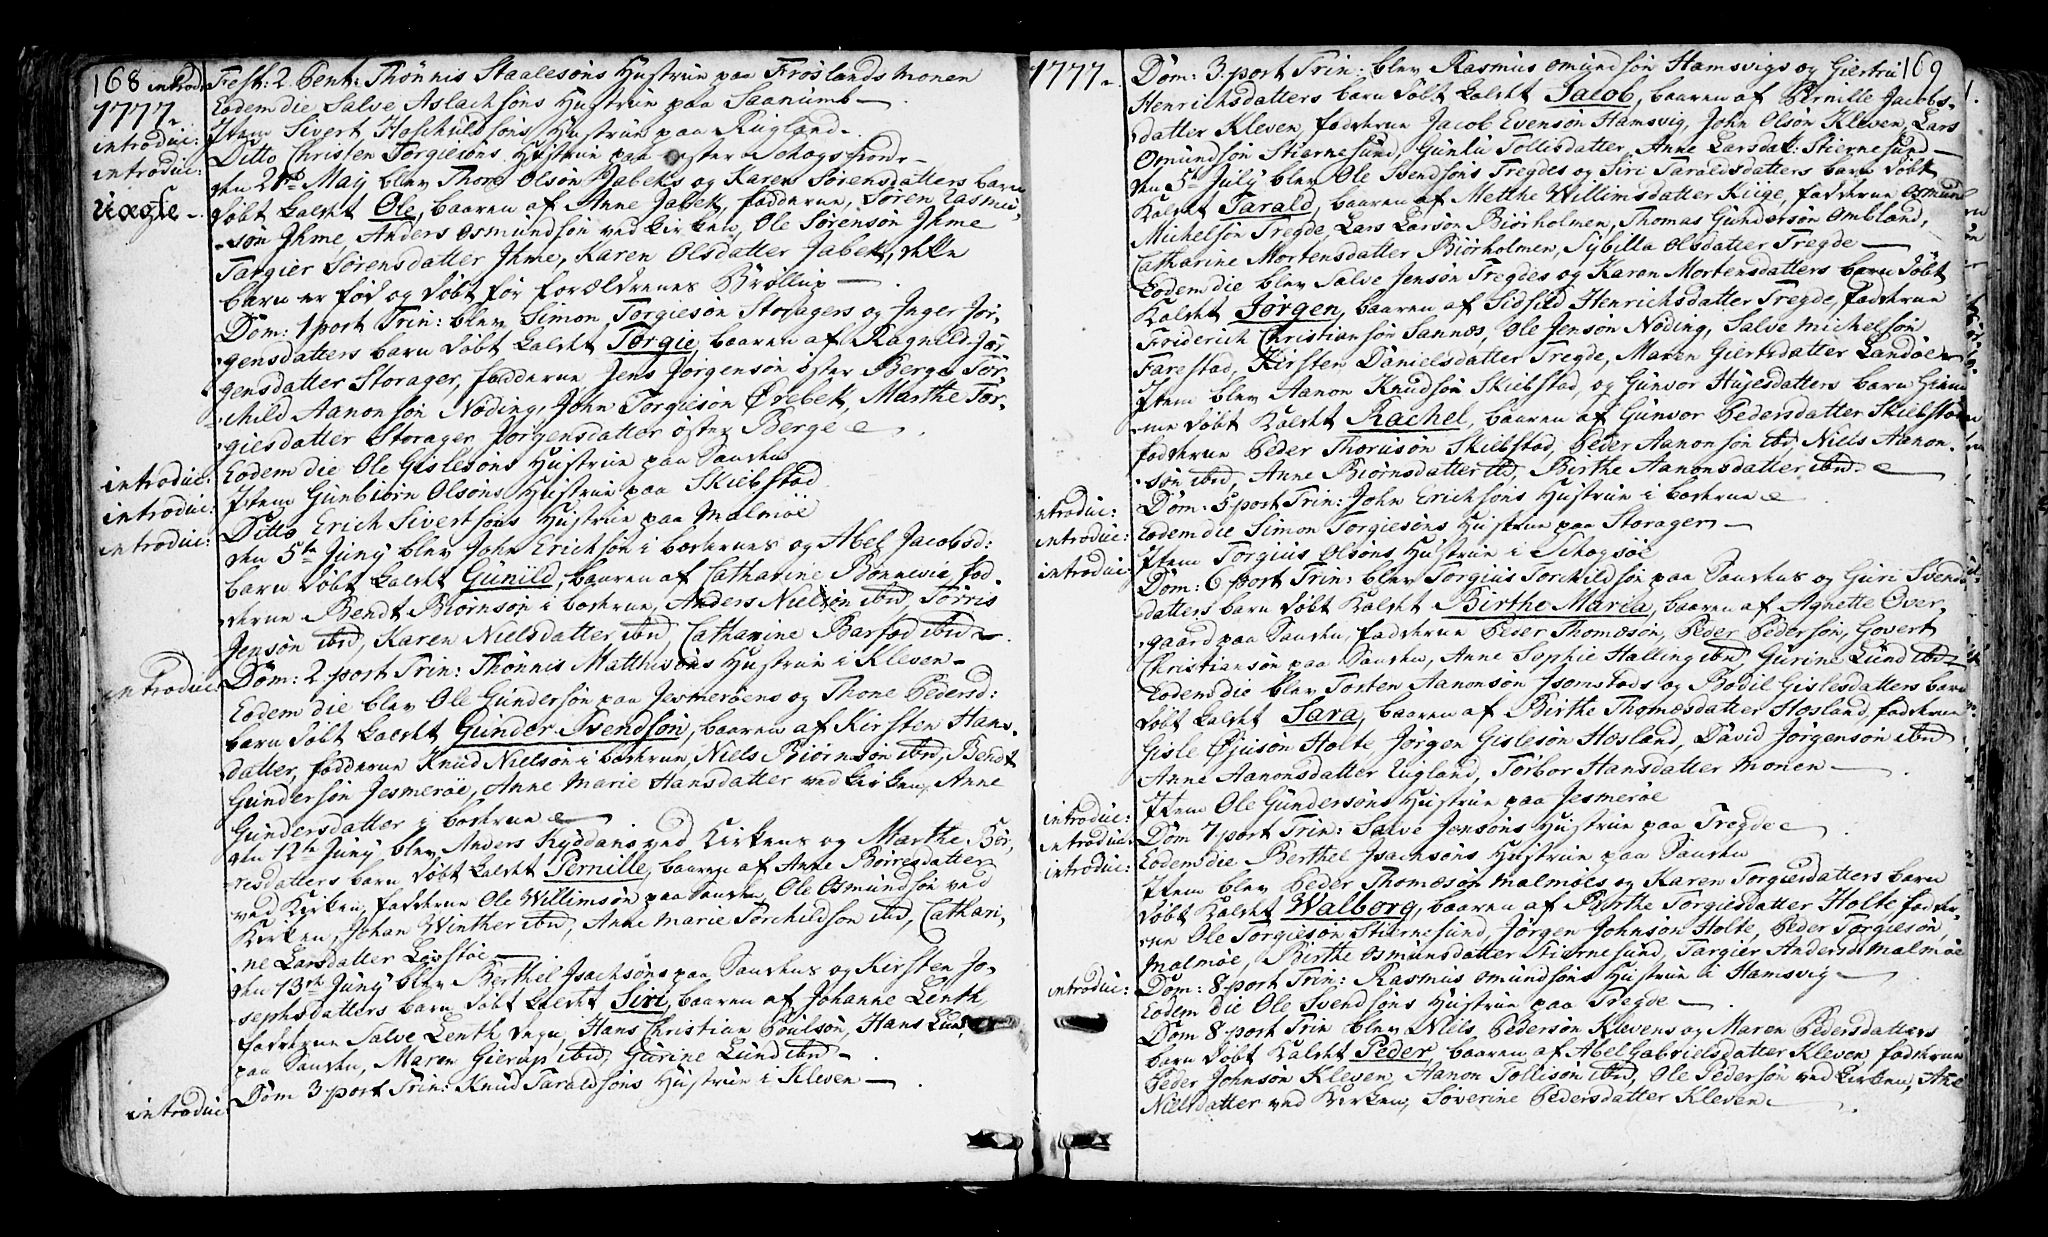 168 introduc: Fest: 2 Pent: Thönnis Staalesöns Hustrue paa Fröslands Monen
1777 Eodem die Salve Aslachsöns Hustrue paa Saanumb
introduc: Item Sivert Haschuldsöns Hustrue paa Rugland
introduc: Ditto Christen Torgiesöns Hustrue paa öster Schogsfiord
den 21de May blev Thore Olsön Jabeks og Karen Sörensdatters barn
Uægte döbt kaldet Ole, baaren af Anne Jabek, fadderne, Sören Rasmu,
sön Ihme, Anders Osmundsön ved kirken, Ole Sörensön Ihme
Targier Sörensdatter Ihme, Karen Olsdatter Jabek, dette
barn er föd og döbt för forældrenes Bröllup
Dom: 1 port Trin: blev Simon Torgiesön Storagers og Inger Jör,
gensdatters barn döbt kaldet Torgie, baaren af Ragnild Jör
gensdatter Storager, fadderne Jens Jörgensön öster Berge Tor,
child Aanonsön Nöding, John Torgiesön Örebek, Marthe Tor,
giesdatter Storager, Jörgensdatter öster Berge
introduc: Eodem die Ole Gislesöns Hustrue paa Sanden
introduc: Item Gunbiörn Olsöns Hustrue paa Skiebstad
introduc: Ditto Erich Sivertsöns Hustrue paa Malmöe
den 5te Juny blev John Erichsön i boderne og Abel Jacobsd:
barn döbt kaldet Gunild, baaren af Catharine Bonnevie, fad,
derne Bendt Biörnsön i boderne, Anders Nielsön ibid, Torris
Jensön ibid, Karen Nielsdatter ibid, Catharine Barfod ibid
introduc: Dom: 2 port Trin: Thönnis Matthisöns Hustrue i Kleven
Eodem die blev Ole Gundersön paa Jesmeröens og Thone Pedersd:
barn döbt kaldet Gunder Svendsön, baaren af Kirsten Hans,
datter, fadderne Knud Nielsön i boderne, Niels Biörnsön ibid, Bendt
Gundersön Jesmeröe, Anne Marie Hansdatter ved kirken, Anne
Gundersdatter i boderne
den 12te Juny blev Anders Ryddans ved Kirkens og Marthe Bör,
resdatters barn döbt kaldet Pernille, baaren af Anne Börresdatter
ved Kirken, fadderne Ole Willimsön paa Sanden, Ole Osmundsön ved
Kirken, Johan Winther ibid, Anne Marie Torchildsön ibid, Cathari,
ne Larsdatter Lofstöe
den 13de Juny blev Berthel Isachsöns paa Sandens og Kirsten Jo,
sephsdatters barn döbt kaldet Siri, baaren af Johanne Lenth
fadderne Salve Lenth degn, Hans Christian Poulsön, Hans Lund
paa Sanden, Maren Gierup ibid, Gurine Lund ibid
introduc: Dom 3 port Trin: Knud Taraldsöns Hustrue i Kleven
1777 Dom: 3 port Trin: blev Rasmus Omundsön Hamsvigs og Giertru 169
Henrichsdatters barn döbt kaldet Jacob, baaren af Pernille Jacobs,
datter Kleven, fadderne Jacob Evensön Hamsvig, John Olsön Kleven, Lars
Osmundsön Stiernesund, Gunla Tollisdatter, Anne Larsdat: Stiernesund
den 5te July blev Ole Svendsöns Tregdes og Siri Taraldsdatters barn döbt
kaldet Tarald, baaren af Metthe Willimsdatter Riige, fadderne Osmund
Michelsön Tregde Lars Larsön Biörholmen, Thomas Gundersön Ombland,
Catharine Mortensdatter Biörholmen, Sybilla Olsdatter Tregde
Eodem die blev Salve Jensön Tregdes og Karen Mortensdatters barn döbt
kaldet Jörgen, baaren af Sidsild Henrichsdatter Tregde, fadderne
Friderich Christiansön Sannæs, Ole Jensön Nöding, Salve Michelsön
Farestad, Kirsten Danielsdatter Tregde, Maren Giertsdatter Landöe
Item blev Aanon Knudsön Skiebstad, og Gunvor Hujesdatters barn hiem
me döbt kaldet Rachel, baaren af Gunvor Pedersdatter Skiebstad
fadderne Peder Thorusön Skiebstad, Peder Aanonsön ibid, Niels Aanon,
sön ibid, Anne Biörnsdatter ibid, Birthe Aanonsdatter ibid
introduc: Dom: 5 port Trin: John Erichsöns Hustrue i boderne
introduc: Eodem die Simon Torgiesöns Hustrue paa Storager
introduc: Item Torgius Olsöns Hustrue i Schogsöe
Dom: 6 port Trin: blev Torgius Torchildsön paa Sandens og Guri Svends
datters barn döbt kaldet Birthe Maria, baaren af Agnette Over,
gaard paa Sanden, fadderne Peder Thomæsön, Peder Pedersön, Govert
Christiansön paa Sanden, Anne Sophie Halling ibid, Gurine Lund ibid
Eodem die blev Tosten Aanonsön Isomstads og Bodil Gislesdatters barn
döbt kaldet Sara, baaren af Birthe Thomæsdatter Hosland, fadderne
Gisle Öjusön Holte, Jörgen Gislesön Hosland, David Jörgensön ibid
Anne Aanonsdatter Rugland, Torbor Hansdatter Monen
introduc: Item Ole Gundersöns Hustrue paa Jesmeröe
introduc: Dom 7 port Trin: Salve Jensöns Hustrue paa Tregde
introduc: Eodem die Berthel Isachsöns Hustrue paa Sanden
Item blev Peder Thomæsön Malmöes og Karen Torgiesdatters barn
döbt kaldet Walborg, baaren af Birthe Torgiesdatter Holte, fadder,
ne Ole Torgiesön Stiernesund, Jörgen Johnsön Holte, Peder Torgiesön,
Malmöe, Birthe Osmunsdatter Stiernesund, Targier Andersd: Malmöe
introduc: Dom: 8 port Trin: Rasmus Omundsöns Hustrue i Hamsvig
Eodem die Ole Svendsöns Hustrue paa Tregde
Dom 8 port Trin blev Niels Pedersön Klevens og Maren Pedersdatters
barn döbt kaldet Peder, baaren af Abel Gabrielsdatter Kleven, fadderne
Peder Johnsön Kleven, Aanon Tollisön ibid, Ole Pedersön ved kirken, Ane
Nielsdatter ved Kirken, Söverine Pedersdatter Kleven